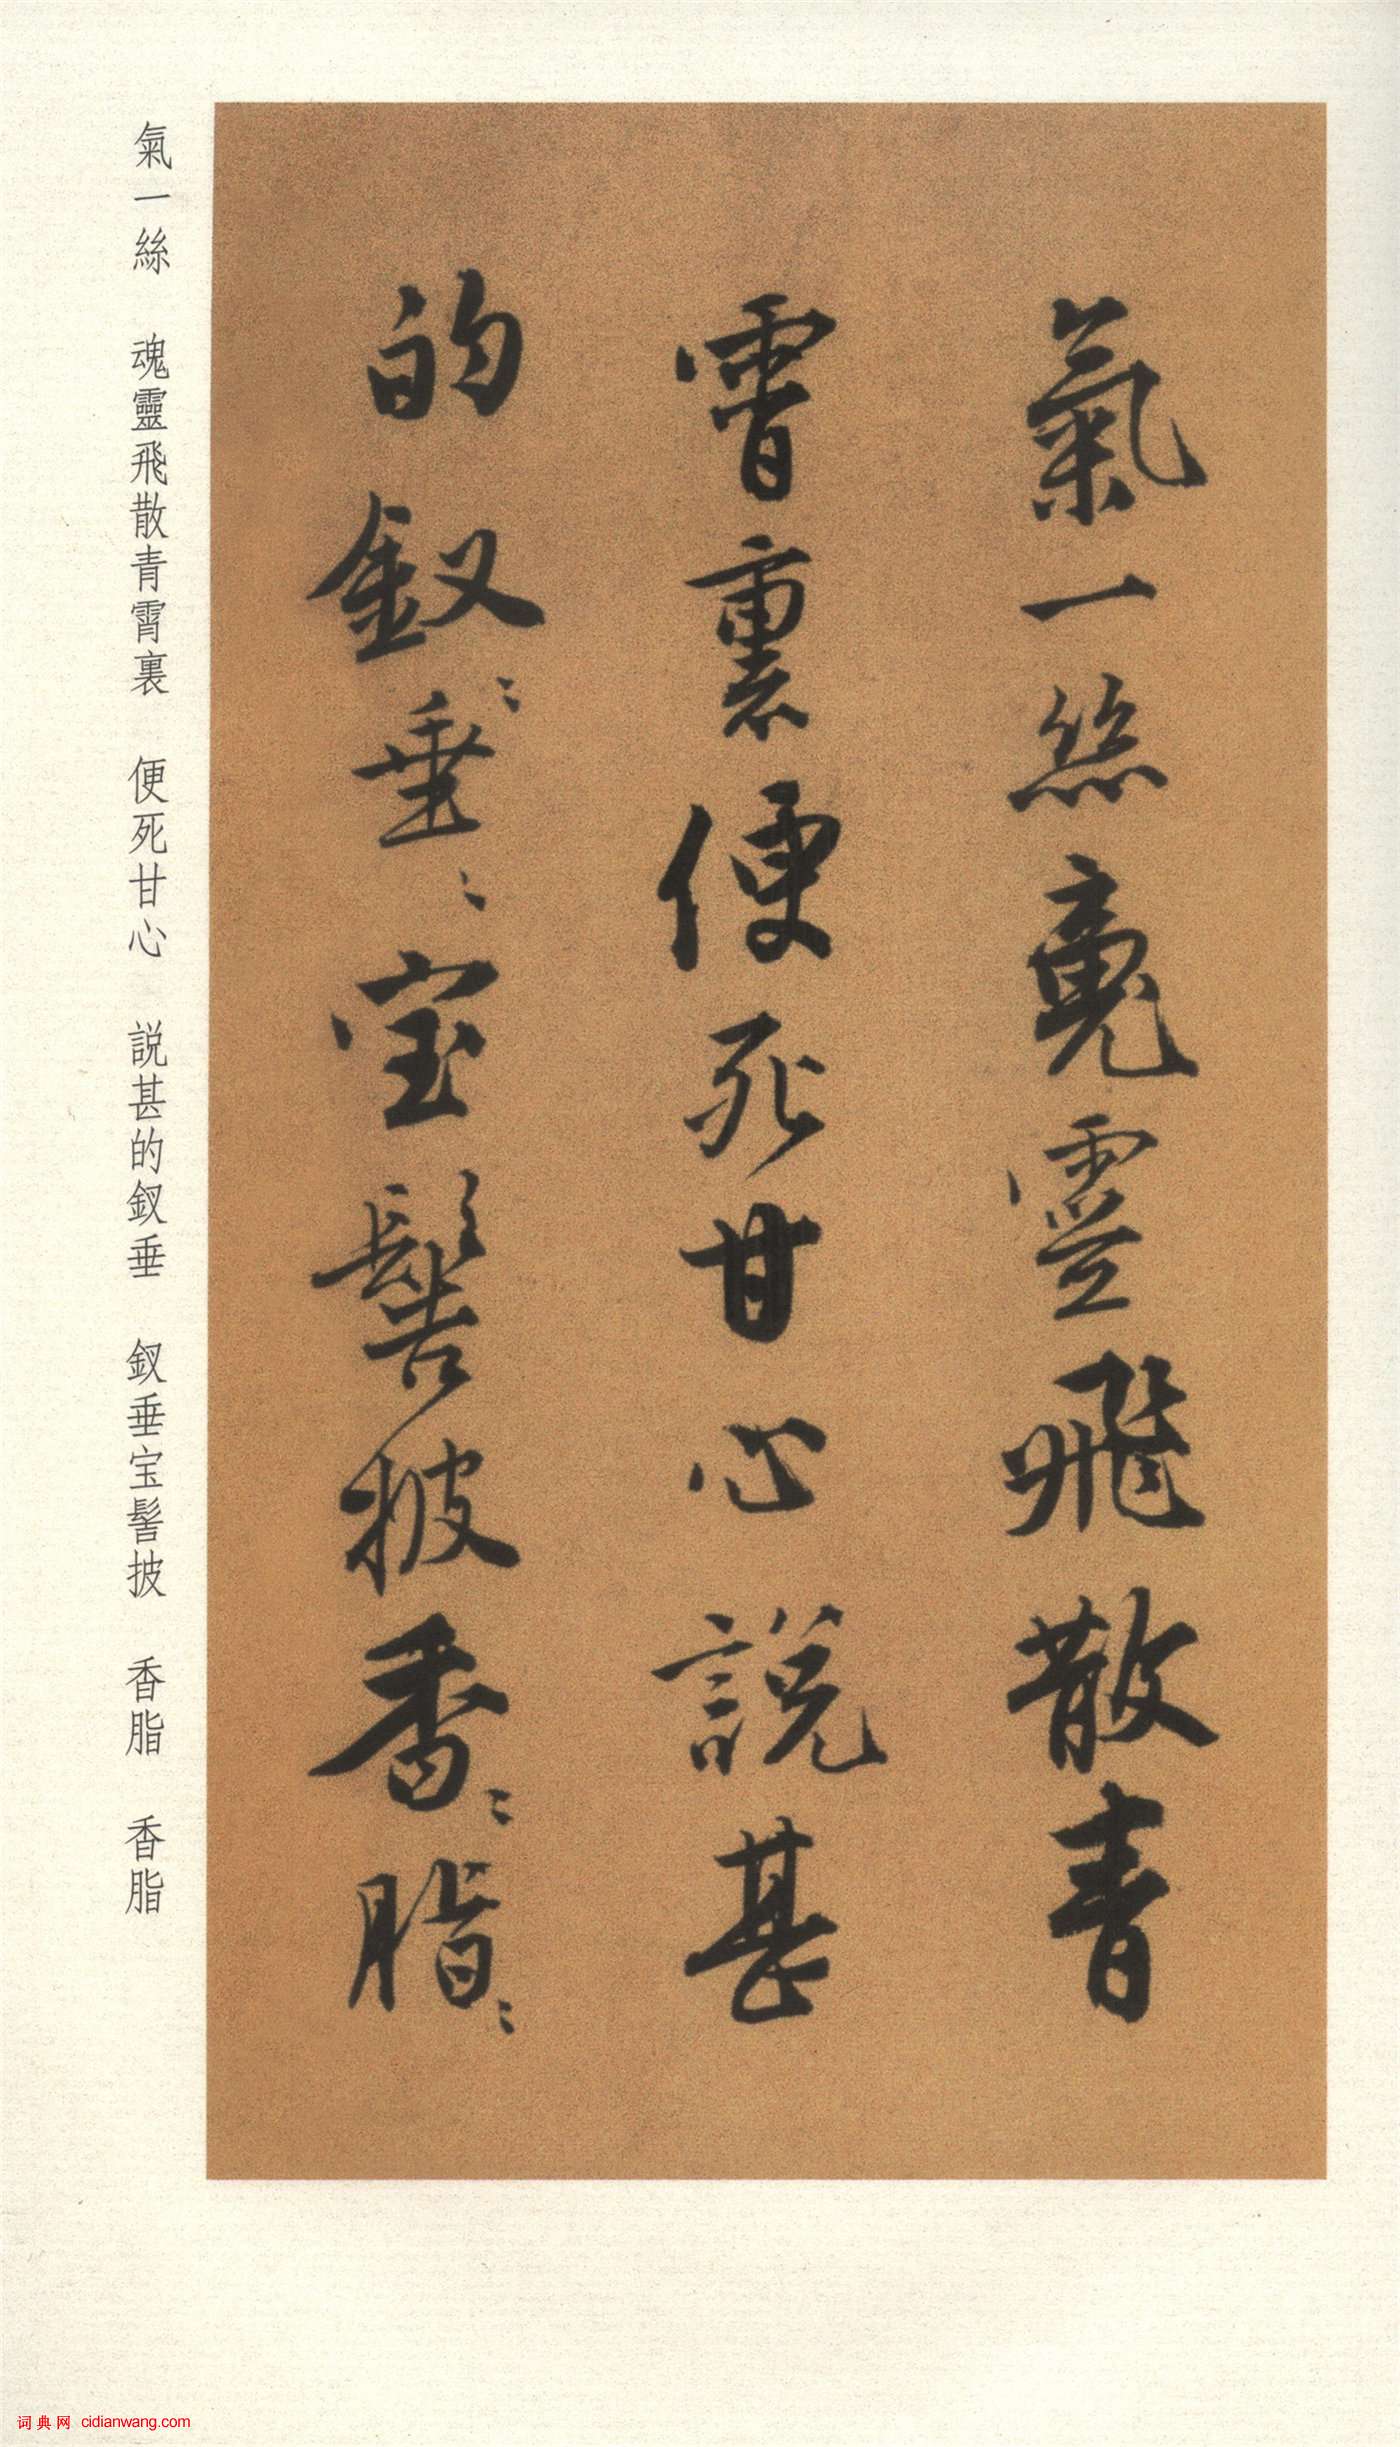 氣一絲魂靈飛散青
霄裏便死甘心説甚
的釵〻垂〻宝髻披香〻脂〻
氣一絲　魂靈飛散青霄裏　便死甘心　説甚的釵垂　釵垂宝髻披　香脂　香脂
词典网 cidianwang.com